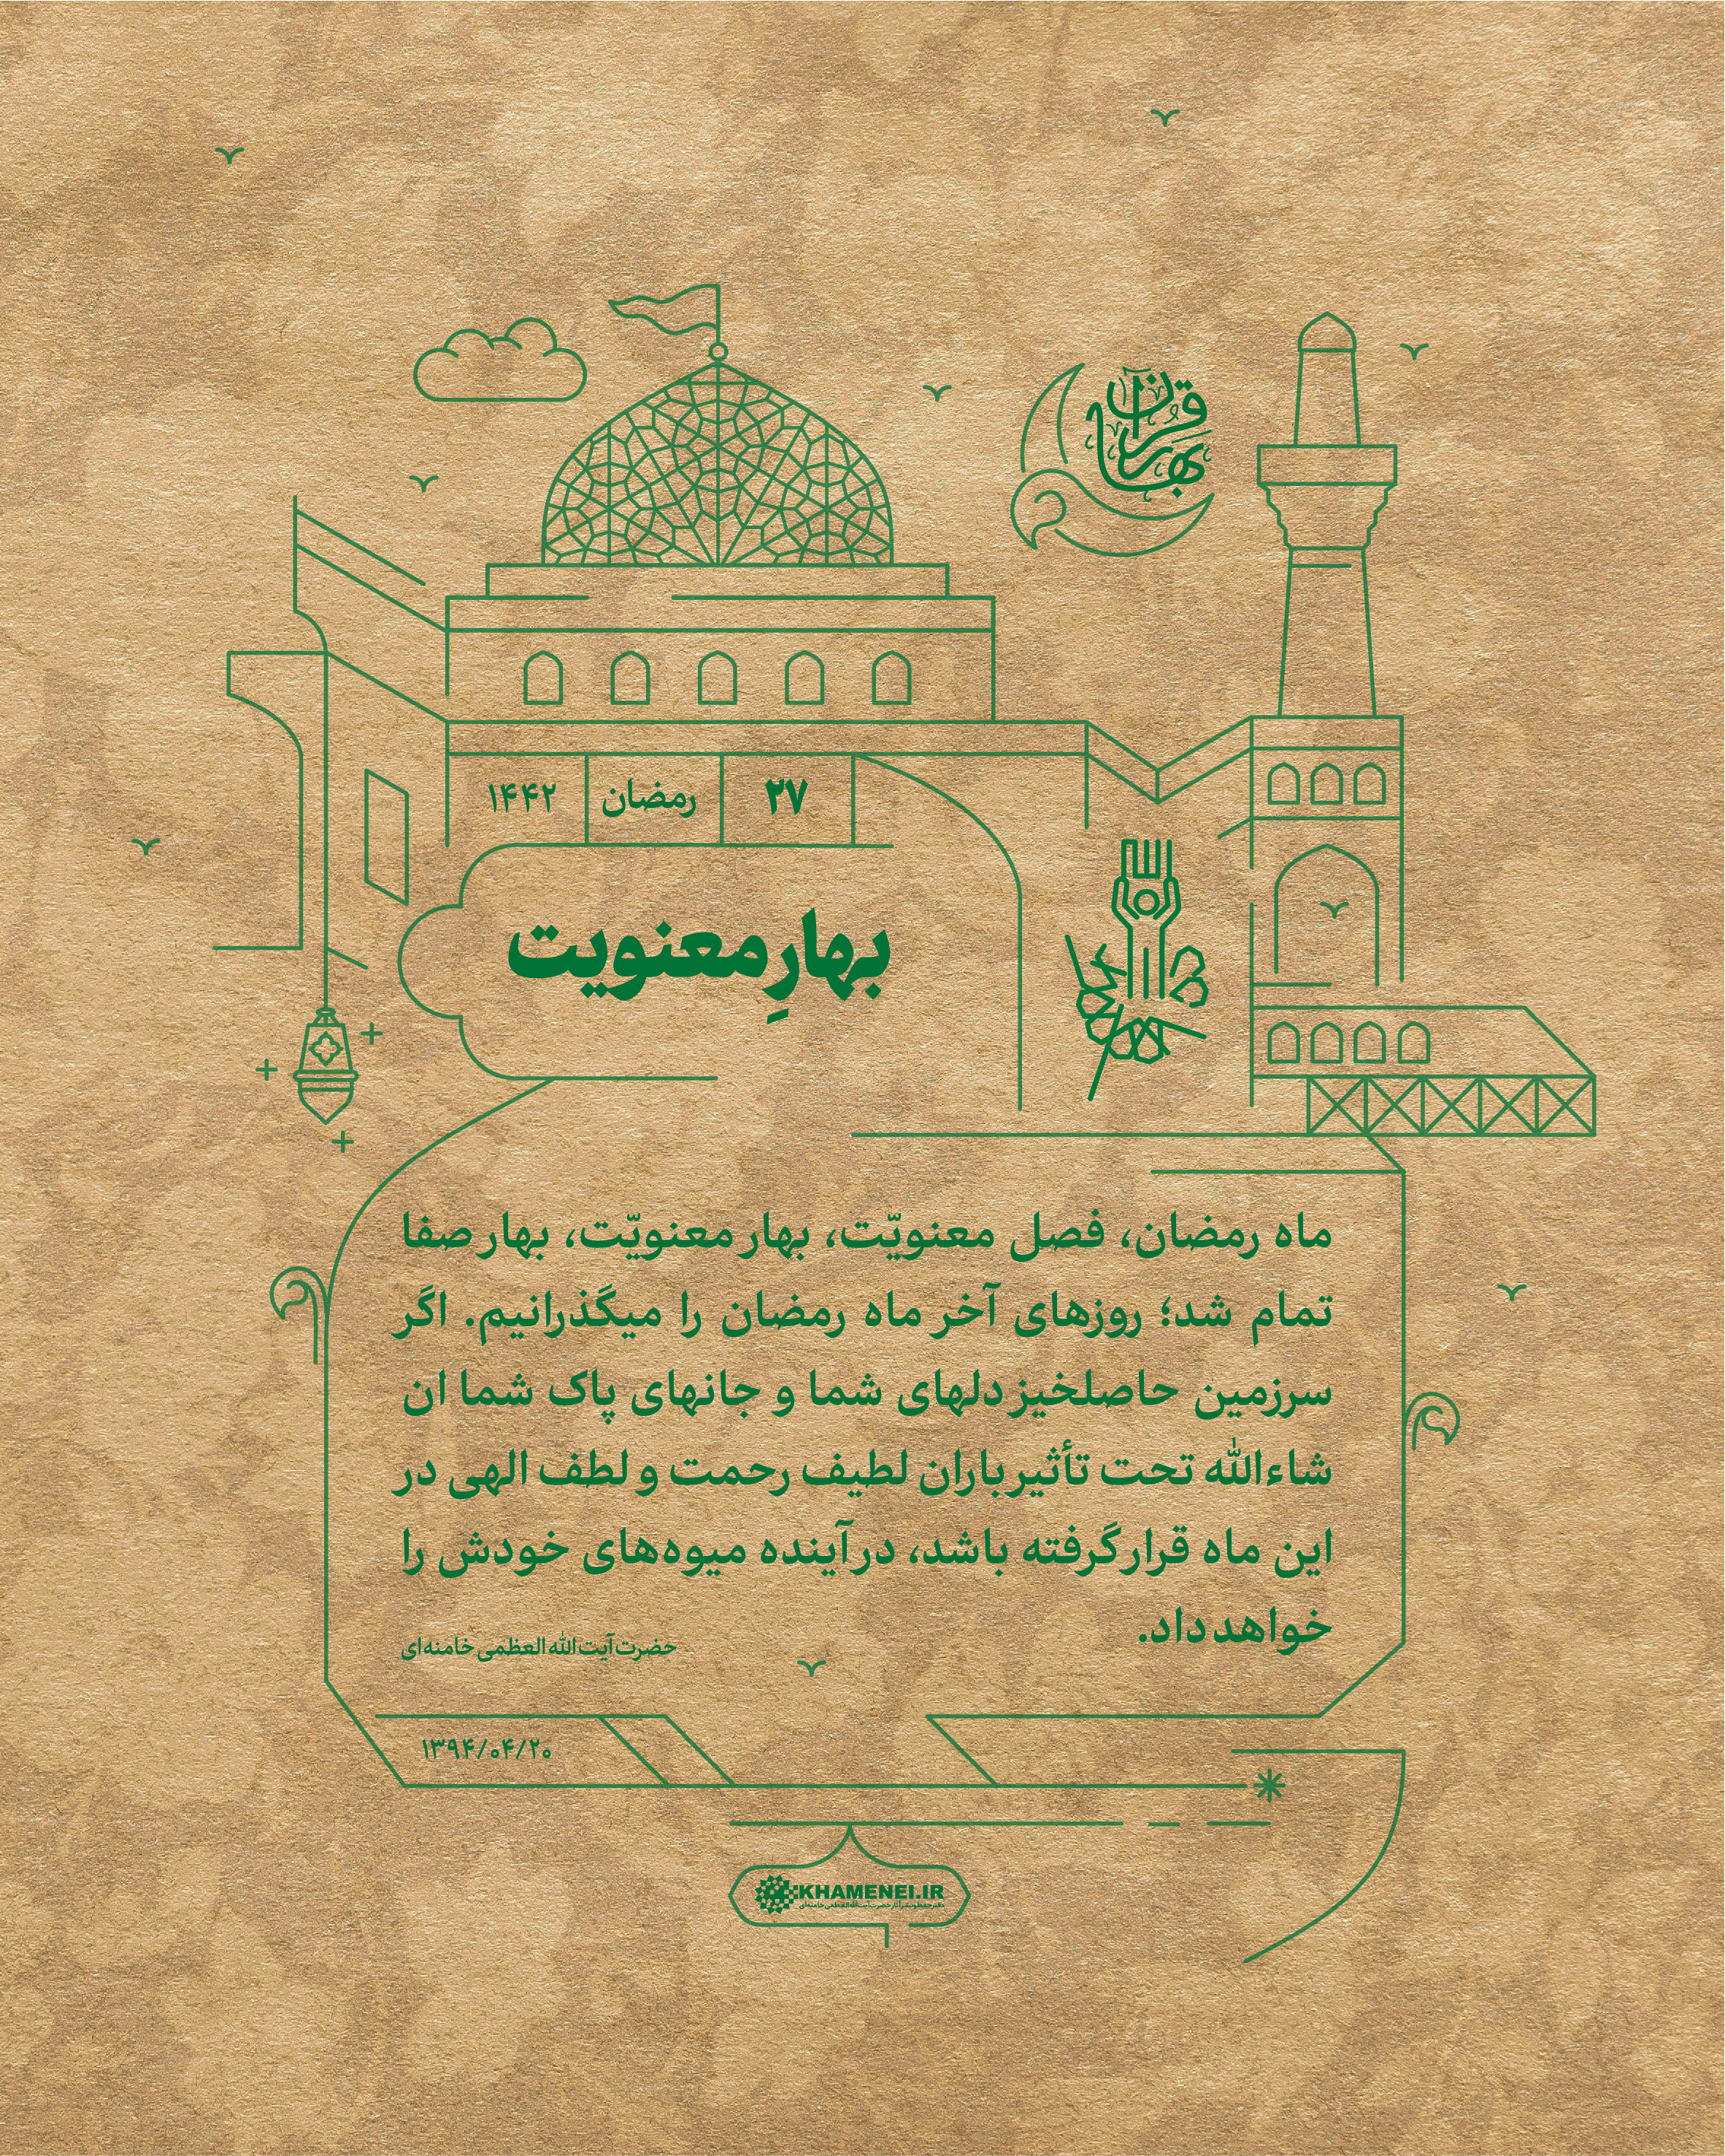 بهار قرآن
۲۷ رمضان ۱۴۴۲
بهارِ معنویت
ماه رمضان، فصل معنویّت، بهار معنویّت، بهار صفا
تمام شد؛ روزهای آخر ماه رمضان را میگذرانیم. اگر
سرزمین حاصلخیز دلهای شما و جانهای پاک شما ان
شاءاللّه تحت تأثیر باران لطیف رحمت و لطف الهی در
این ماه قرار گرفته باشد، در آینده میوه‌های خودش را
خواهد داد.
حضرت آیت‌اللّه‌العظمی خامنه‌ای
۱۳۹۴/۰۴/۲۰
KHAMENEI.IR
دفتر حفظ و نشر آثار حضرت آیت‌الله‌العظمی خامنه‌ای